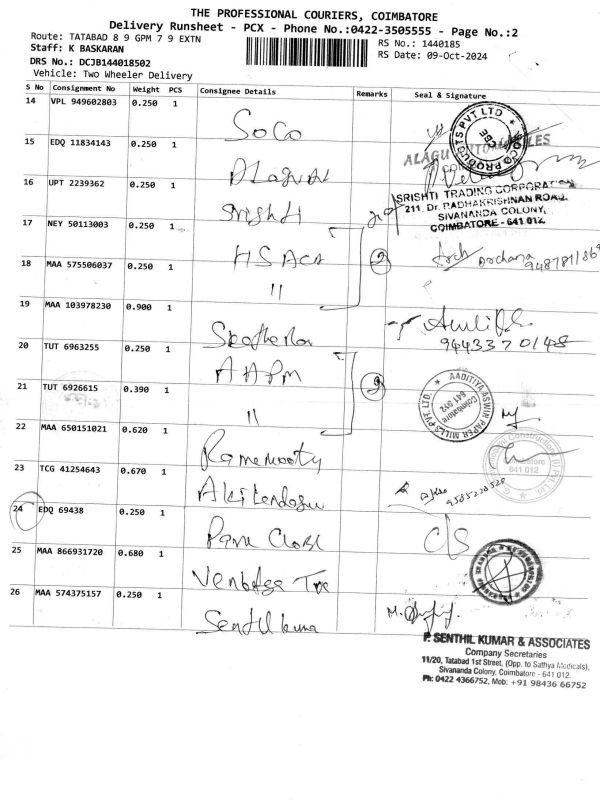 THE PROFESSIONAL COURIERS, COIMBATORE
Delivery Runsheet - PCX - Phone No.:0422-3505555 - Page No.:2
Route: TATABAD 8 9 GPM 7 9 EXTN
RS No.: 1440185
Staff: K BASKARAN
RS Date: 09-Oct-2024
DRS No.: DCJB144018502
Vehicle: Two Wheeler Delivery
S No Consignment No Weight PCS Consignee Details Remarks Seal & Signature
14 VPL 949602803 0.250 1 Soco
15 EDQ 11834143 0.250 1 Alagual
16 UPT 2239362 0.250 1 Srishti
SRISHTI TRADING CORPORATION
211, Dr. RADHAKRISHNAN ROAD,
SIVANANDA COLONY,
COIMBATORE - 641 012.
17 NEY 50113003 0.250 1 HSACA
18 MAA 575506037 0.250 1 11 2 Archana
19 MAA 103978230 0.900 1
9443370148
20 TUT 6963255 0.250 1 AAPM
21 TUT 6926615 0.390 1 11
AADITIYA ASWIN PAPER MILLS PVT. LTD.
Coimbatore
641 012
22 MAA 650151021 0.620 1 Ramamooty
641 012
23 TCG 41254643 0.670 1
24 EDQ 69438 0.250 1 C/S
25 MAA 866931720 0.680 1
26 MAA 574375157 0.250 1 Senthil kuma
P. SENTHIL KUMAR & ASSOCIATES
Company Secretaries
11/20, Tatabad 1st Street, (Opp. to Sathya Medicals),
Sivananda Colony, Coimbatore - 641 012.
Ph: 0422 4366752, Mob: +91 98436 66752